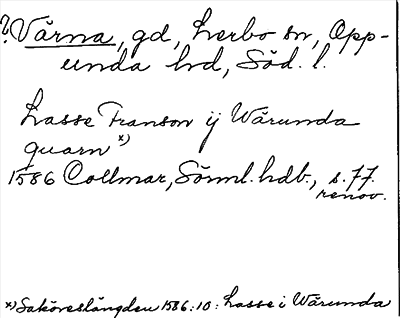 ? Värna, gd, Lerbo sn, Opp-
unda hd, Söd. l.
Lasse Franson ij Wärunda
quarn x)
1586 Collmar, Sörml. hdb., s. 77.
renov.
x) Saköreslängden 1586:10: Lasse i Wärunda